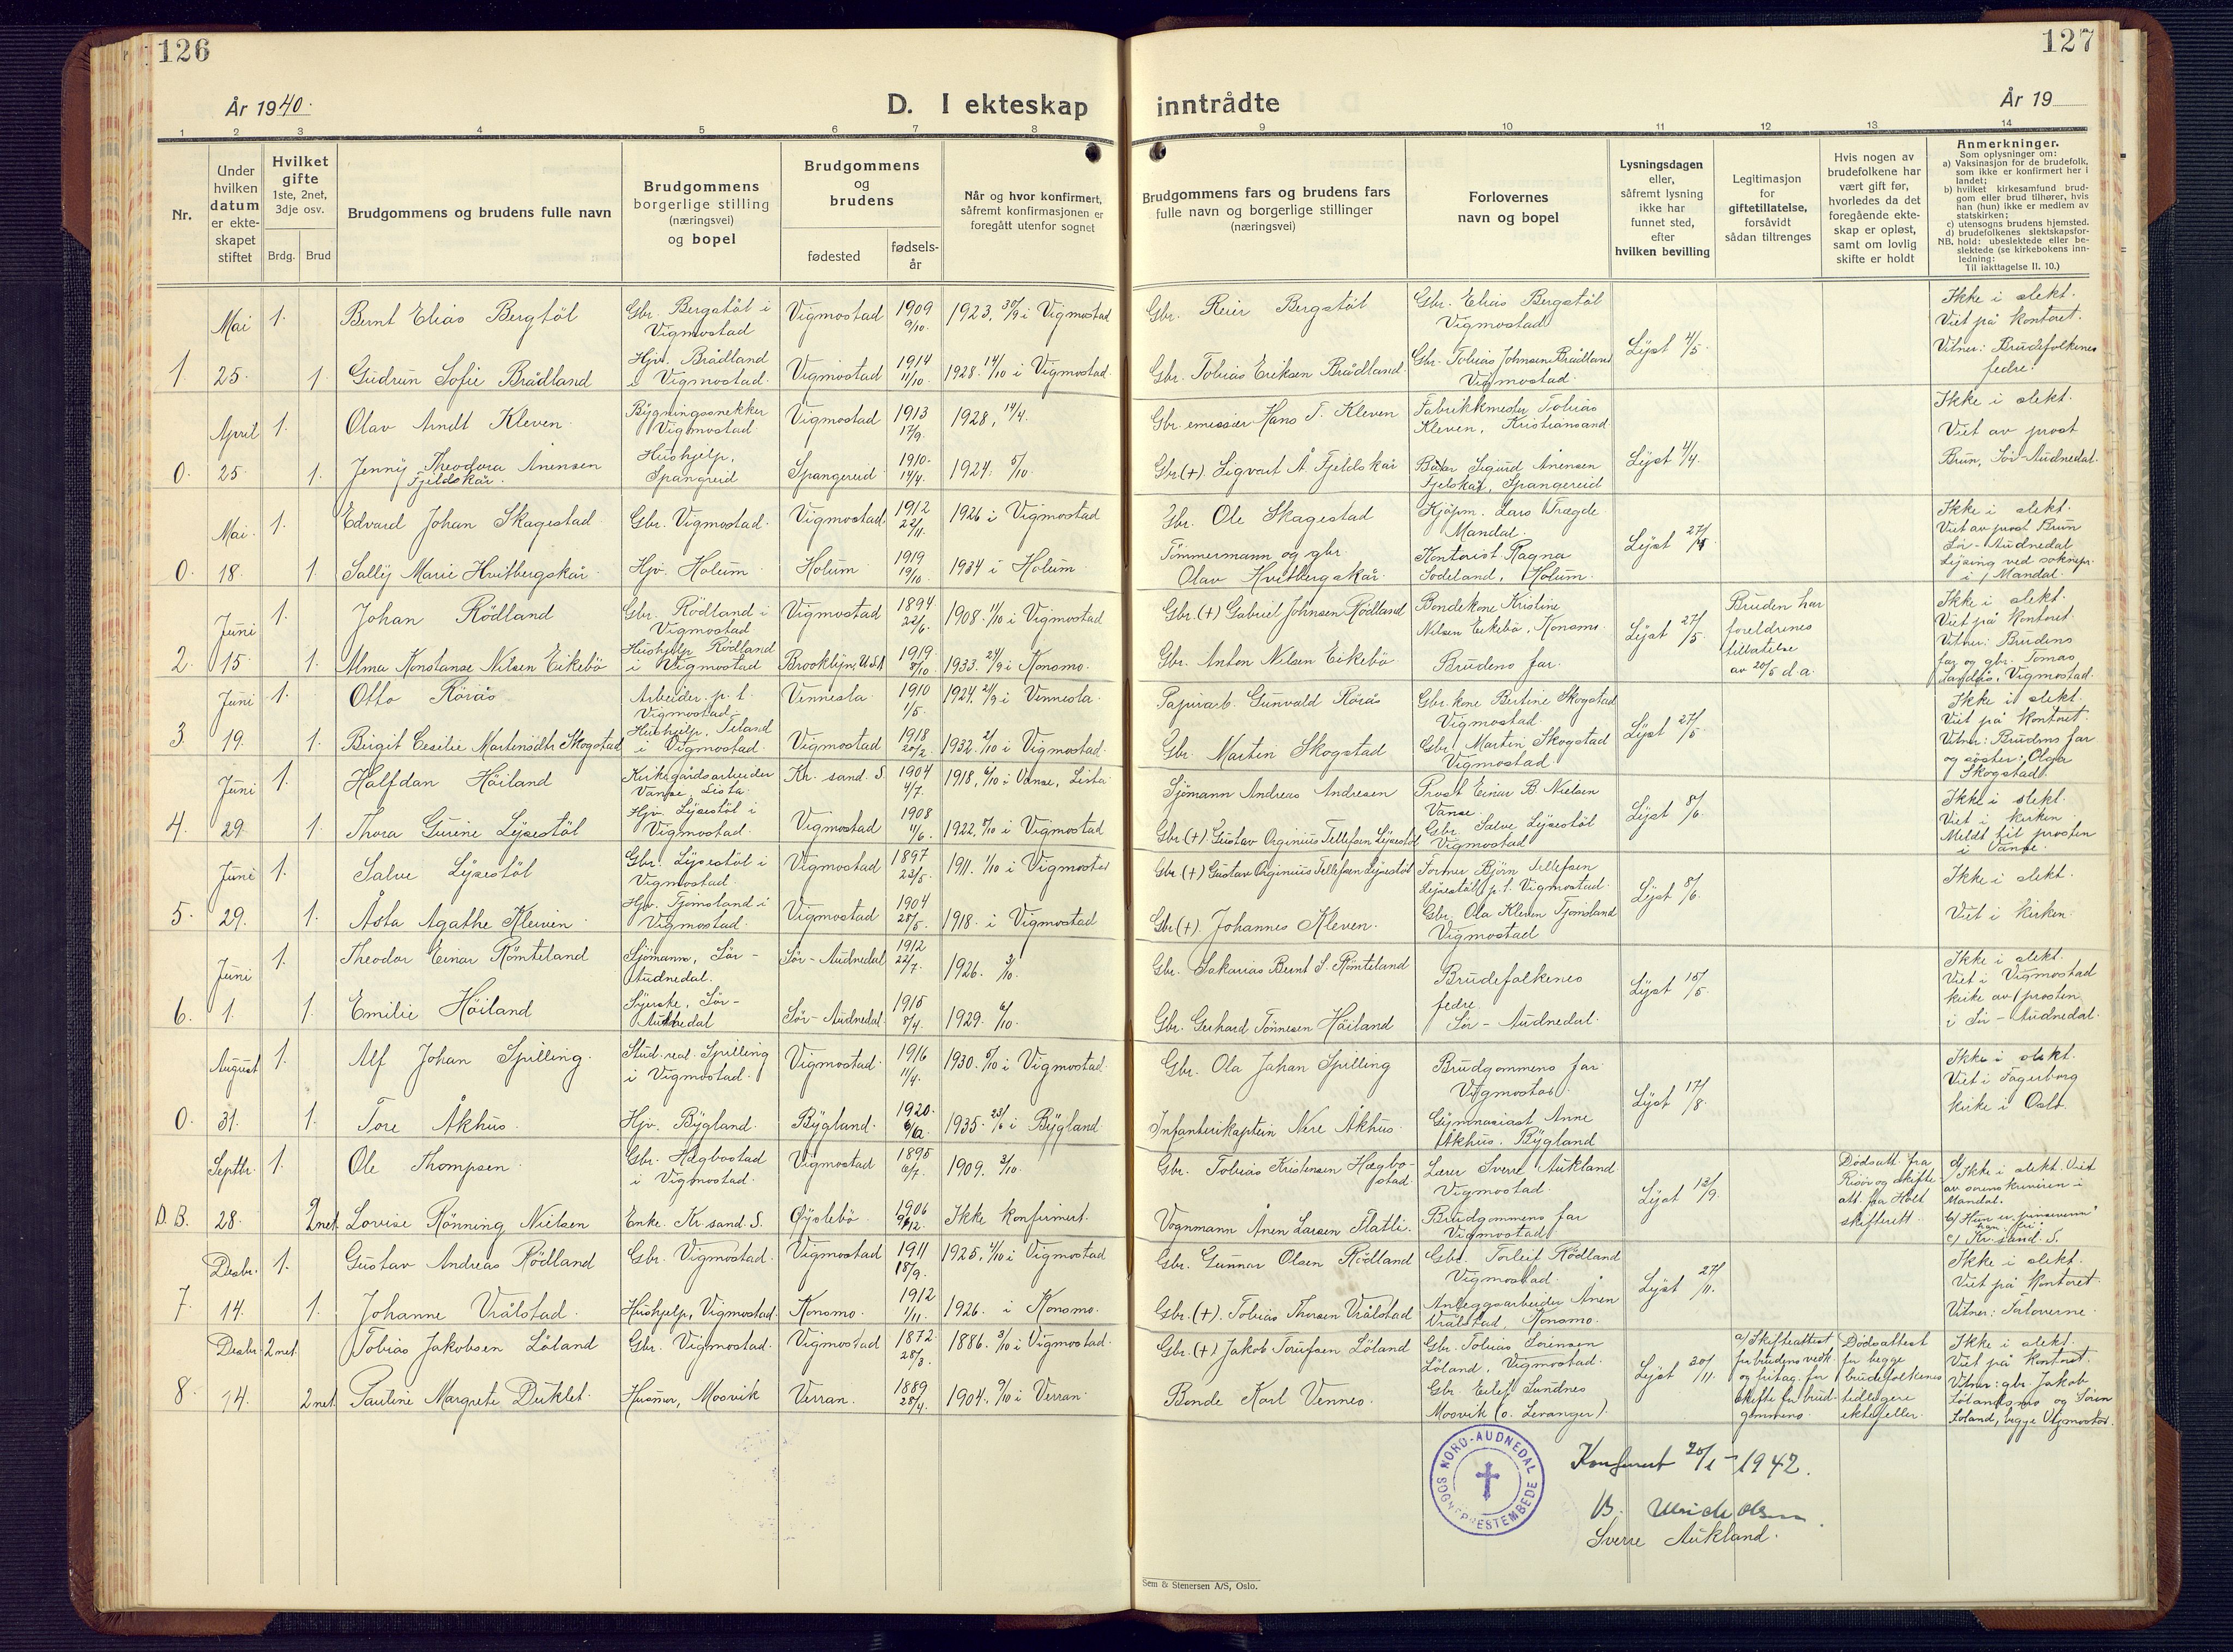 126
127
År 1940.
D. I ekteskap inntrådte
År 19
1 2 3 4 5 6 7 8 9 10 11 12 13 14
Nr.
Under
hvilken
datum
er ekte-
skapet
stiftet
Hvilket
gifte
1ste, 2net,
3dje osv.
Brdg. Brud
Brudgommens og brudens fulle navn
Brudgommens
borgerlige stilling
(næringsvei)
og bopel
Brudgommens
og
brudens
fødested
fødsels-
år
Når og hvor konfirmert,
såfremt konfirmasjonen er
foregått utenfor sognet
Brudgommens fars og brudens fars
fulle navn og borgerlige stillinger
(næringsvei)
Forlovernes
navn og bopel
Lysningsdagen
eller,
såfremt lysning
ikke har
funnet sted,
efter
hvilken bevilling
Legitimasjon
for
giftetillatelse,
forsåvidt
sådan tiltrenges
Hvis nogen av
brudefolkene har
vært gift før,
hvorledes da det
foregående ekte-
skap er opløst,
samt om lovlig
skifte er holdt
Anmerkninger.
Som oplysninger om:
a) Vaksinasjon for de brudefolk,
som ikke er konfirmert her i
landet;
b) hvilket kirkesamfund brud-
gom eller brud tilhører, hvis
han (hun) ikke er medlem av
statskirken;
c) utensogns brudens hjemsted.
d) brudefolkenes slektskapsfor-
NB. hold: ubeslektede eller be-
slektede (se kirkebokens inn-
ledning:
Til iakttagelse II. 10.)
1 Mai 25. 1. Bernt Elias Bergstöl
Gbr. Bergstöl i
Vigmostad
Vigmostad 1909 9/10. 1923, 30/9 i Vigmostad
Gbr. Reier Bergstöl
Gbr. Elias Bergstöl
Vigmostad
1. Gudrun Sofie Brådland
Hjv. Brådland
i Vigmostad.
Vigmostad 1914 11/10. 1928. 14/10 i Vigmostad.
Gbr. Tobias Eriksen Brådland
Gbr. Tobias Johnsen Brådland
Vigmostad.
Lyst 4/5.
Ikke i slekt.
Viet på kontoret.
Vitner: Brudefolkenes
fedre.
0. April 25 1. Olav Arndt Kleven.
Bygningssnekker
Vigmostad.
Vigmostad 1913 17/9. 1928, 14/4.
Gbr. emissær Hans T. Kleven
Fabrikkmester Tobias
Kleven, Kristiansand
1. Jenny Theodora Anensen
Fjeldskår.
Hushjelp,
Spangreid
Spangereid. 1910. 14/4. 1924. 5/10.
Gbr (+). Sigvart Å Fjeldskår
Baker Sigurd Anensen
Fjelskår, Spangereid
Lyst 4/4.
Ikke i slekt.
Viet av prost
Brun, Sör-Audnedal.
0. Mai. 18. 1. Edvard Johan Skagestad
Gbr. Vigmostad.
Vigmostad. 1912 22/11. 1926 i Vigmostad
Gbr. Ole Skagestad
Kjöpm. Lars Trægde
Mandal.
1. Sally Marie Hvitbergskår.
Hjv. Holum.
Holum. 1919 19/10 1934 i Holum.
Tömmermann og gbr.
Olav Hvitbergskår.
Kontorist Ragna
Sodeland, Holum.
Lyst 27/4.
Ikke i slekt.
Viet av prost Brun
Sör-Audnedal
Lysing ved soknepr.
i Mandal.
2. Juni 15. 1. Johan Rödland
Gbr. Rödland i
Vigmostad
Vigmostad 1894 22/6. 1908. 11/10 i Vigmostad
Gbr. (+) Gabriel Johnsen Rödland
Bondekone Kristine
Nilsen Eikebö, Konsmo.
1. Alma Konstanse Nilsen Eikebö
Hushjelp Rödland
i Vigmostad
Brooklyn, U.S.A 1919. 8/10. 1933. 24/9 i Konsmo.
Gbr. Anton Nilsen Eikebö
Brudens far.
Lyst 27/5.
Bruden har
foreldrenes
tillatelse
av 20/5 d.a.
Ikke i slekt.
Viet på kontoret.
Vitner: Brudens
far og gbr. Tomas
Sandås, Vigmostad.
3. Juni 19. 1. Otto Rörås
Arbeider, p.t.
Vigmostad.
Vennesla. 1910 1/5. 1924. 21/9 i Vennesla.
Papirarb. Gunvald Rörås
Gbr.kone Bertine Skogstad
Vigmostad.
1. Birgit Cecilie Martinsdtr Skogstad
Hushjelp, Teland
i Vigmostad.
Vigmostad. 1918 20/2. 1932. 2/10 i Vigmostad.
Gbr. Martin Skogstad
Gbr. Martin Skogstad
Vigmostad.
Lyst 27/5.
Ikke i slekt.
Viet på kontoret.
Vitner: Brudens far
og söster: Olga
Skogstad.
4. Juni 29. 1. Halfdan Höiland
Kirkegårdsarbeider
Vanse, Lista.
Kr. sand. S. 1904 4/7. 1918, 6/10 i Vanse, Lista.
Sjömann Andreas Andresen
Prost Einar B. Nielsen
Vanse.
1. Thora Gurine Lysestöl
Hjv. Lysestöl i
Vigmostad.
Vigmostad 1908 11/6. 1922. 8/10 i Vigmostad
Gbr. (+) Gustav Orginius Tellefsen Lysestöl
Gbr. Salve Lysestöl
Vigmostad
Lyst 8/6.
Ikke i slekt.
Viet i kirken.
Meldt til prosten
i Vanse.
5. Juni 29. 1. Salve Lysestöl
Gbr. Lysestöl i
Vigmostad.
Vigmostad 1897 23/5. 1911. 1/10 i Vigmostad
Gbr. (+) Gustav Orginius Tellefsen Lysestöl
Former Björn Tellefsen
Lysestöl, p.t. Vigmostad.
1. Åsta Agathe Kleven.
Hjv. Tjomsland i
Vigmostad.
Vigmostad 1904 28/5. 1918. i Vigmostad
Gbr (+). Johannes Kleven.
Gbr. Ola Kleven Tjomsland
Vigmostad
Lyst 8/6.
Ikke i slekt.
Viet i kirken.
6. Juni 1. 1. Theodor Einar Römteland
Sjömann, Sör-
Audnedal.
Sör-Audnedal 1912 22/7. 1926. 3/10.
Gbr. Sakarias Bernt S. Römteland
1. Emilie Höiland
Syerske, Sör-
Audnedal
Sör-Audnedal. 1915 8/4. 1929. 6/10.
Gbr. Gerhard Tönnesen Höiland
Brudefolkenes
fedre.
Sör-Audnedal.
Lyst 15/5.
Ikke i slekt.
Viet i Vigmostad
kirke av prosten
i Sör-Audnedal.
0. August 31. 1. Alf Johan Spilling.
Stud. real. Spilling
i Vigmostad.
Vigmostad. 1916 11/4. 1930. 5/10 i Vigmostad.
Gbr. Ola Johan Spilling
Brudgommens far.
Vigmostad.
1. Tore Åkhus.
Hjv. Bygland.
Bygland. 1920. 1935. 23/6 i Bygland
Infanterikaptein Nere Åkhus.
Gymnasiast Anne
Åkhus. Bygland
Lyst 17/8.
Ikke i slekt.
Viet i Fagerborg
kirke i Oslo.
D.B. Septbr. 28. 1. Ole Thompsen.
Gbr. Hægbostad
i Vigmostad.
Vigmostad 1895 6/7. 1909. 3/10.
Gbr. Tobias Kristensen Hægbo-
stad.
Lærer Sverre Aukland
Vigmostad.
2net. Lovise Rönning Nielsen
Enke. Kr. sand. S.
Öyslebö. 1906 Ikke konfirmert.
Vognmann Ånen Larsen Flatli.
Brudgommens far
Vigmostad
Lyst 13/9.
Dödsatt. fra
Risör og skifte-
att. fra Holt
skifterett.
d/ Ikke i slekt. Viet
av sorenskriveren i
Mandal.
b/ Hun er pinsevenn
c/ Kr. sand. S.
7. Desbr. 14. 1. Gustav Andreas Rödland
Gbr. Vigmostad.
Vigmostad 1911 18/9. 1925, 4/10 i Vigmostad
Gbr. Gunnar Olsen Rödland
Gbr. Torleif Rödland
Vigmostad.
1. Johanne Vrålstad.
Hushjelp, Vigmostad.
Konsmo. 1912 1/11. 1926. i Konsmo.
Gbr. (+). Tobias Thorsen Vrålstad
Anleggsarbeider Ånen
Vrålstad, Konsmo.
Lyst 27/11.
Ikke i slekt.
Viet på kontoret.
Vitner: Forloverne.
8. Desbr. 14. 2net. Tobias Jakobsen Löland
Gbr. Vigmostad.
Vigmostad 1872. 28/3. 1886. 3/10 i Vigmostad.
Gbr. (+) Jakob Torufsen Löland
Gbr. Tobias Sörensen
Löland, Vigmostad.
2net. Pauline Margrete Duklet.
Husmor, Mosvik
Verran. 1889 28/4. 1904. 9/10 i Verran.
Bonde Karl Vennes.
Gbr. Eilef Sundnes
Mosvik (o. Levanger).
Lyst 30/11.
a/ Skifteattest
for brudens vedk.
og fritag. for
skifte for brud-
gommens.
Dödsattest
for begge
brudefolkenes
tidligere
ektefeller
Ikke i slekt.
Viet på kontoret.
Vitner: gbr. Jakob
Lölandsmo og Sören
Löland, begge Vigmostad.
NORD-AUDNEDAL
SOGNEPRESTEMBEDE
Konferert 20/1 - 1942.
Sverre Aukland.
Sem & Stenersen A/S, Oslo.